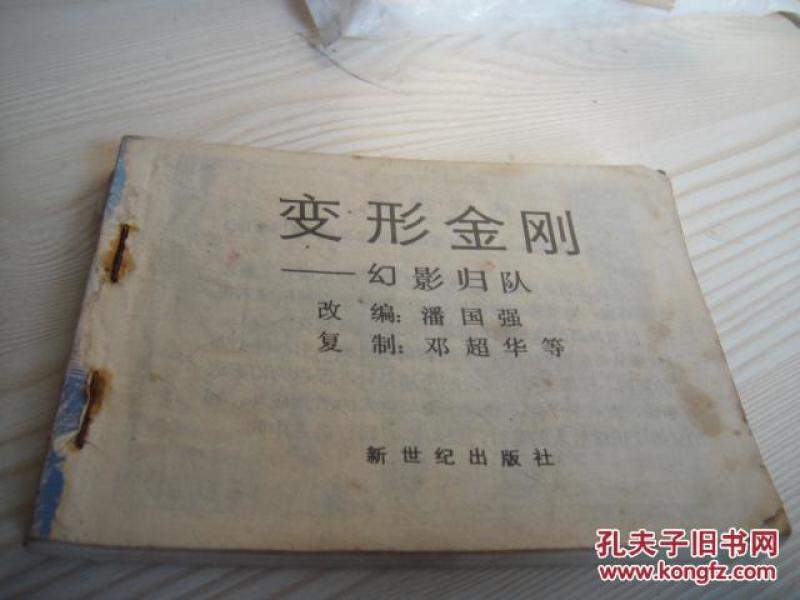 变形金刚
——幻影归队
改 编：潘国强
复 制：邓超华等
新世纪出版社
孔夫子旧书网
www.kongfz.com